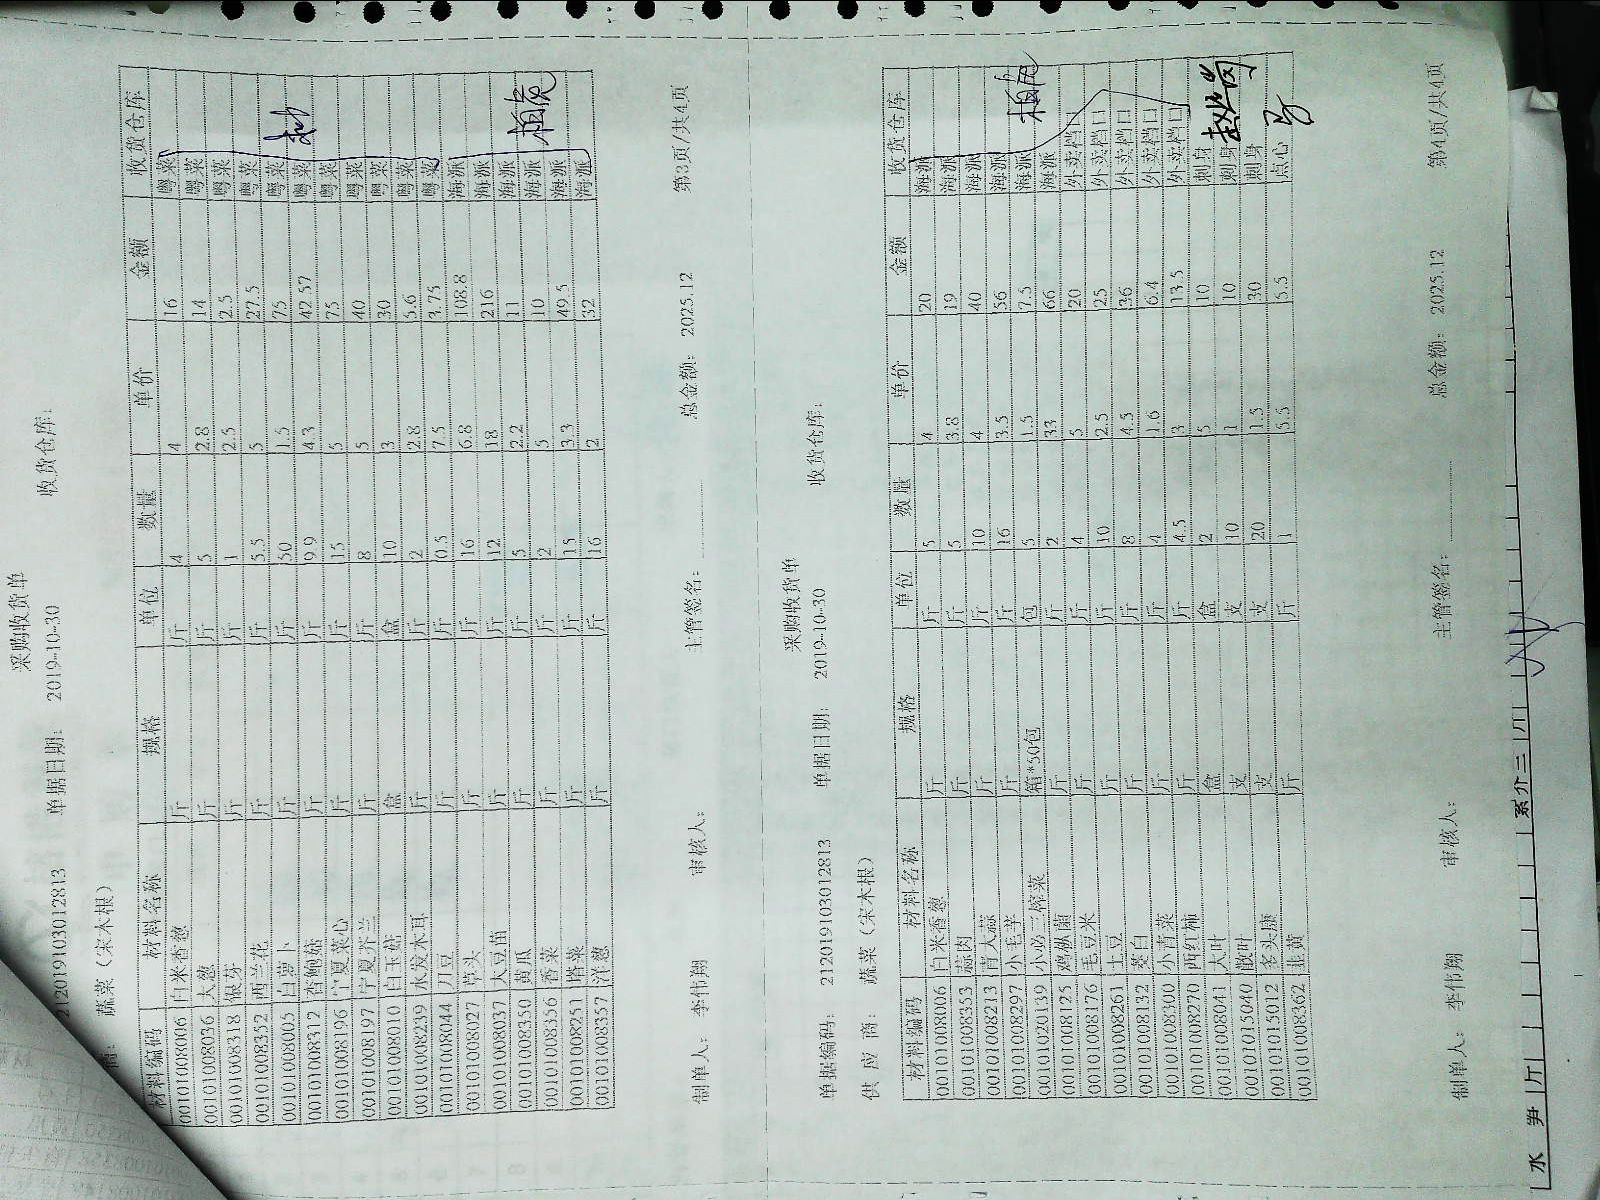 采购收货单
212019103012813 单据日期: 2019-10-30 收货仓库:
商: 蔬菜(宋木根)
材料编码 材料名称 规格 单位 数量 单价 金额 收货仓库
00101008006 白米香葱 斤 斤 4 4 16 粤菜
00101008036 大葱 斤 斤 5 2.8 14 粤菜
00101008318 银芽 斤 斤 1 2.5 2.5 粤菜
00101008352 西兰花 斤 斤 5.5 5 27.5 粤菜
00101008005 白萝卜 斤 斤 50 1.5 75 粤菜
00101008312 杏鲍菇 斤 斤 9.9 4.3 42.57 粤菜
00101008196 宁夏菜心 斤 斤 15 5 75 粤菜
00101008197 宁夏芥兰 斤 斤 8 5 40 粤菜
00101008010 白玉菇 盒 盒 10 3 30 粤菜
00101008239 水发木耳 斤 斤 2 2.8 5.6 粤菜
00101008044 刀豆 斤 斤 0.5 7.5 3.75 粤菜
00101008027 草头 斤 斤 16 6.8 108.8 海派
00101008037 大豆苗 斤 斤 12 18 216 海派
00101008350 黄瓜 斤 斤 5 2.2 11 海派
00101008356 香菜 斤 斤 2 5 10 海派
00101008251 塔菜 斤 斤 15 3.3 49.5 海派
00101008357 洋葱 斤 斤 16 2 32 海派
制单人: 李伟翔 审核人: 主管签名: 总金额: 2025.12 第3页/共4页
采购收货单
单据编码: 212019103012813 单据日期: 2019-10-30 收货仓库:
供应商: 蔬菜(宋木根)
材料编码 材料名称 规格 单位 数量 单价 金额 收货仓库
00101008006 白米香葱 斤 斤 5 4 20 海派
00101008353 蒜肉 斤 斤 5 3.8 19 海派
00101008213 青大蒜 斤 斤 10 4 40 海派
00101008297 小毛芋 斤 斤 16 3.5 56 海派
00101020139 小必三榨菜 箱*50包 包 5 1.5 7.5 海派
00101008125 鸡枞菌 斤 斤 2 33 66 海派
00101008176 毛豆米 斤 斤 4 5 20 外卖档口
00101008261 土豆 斤 斤 10 2.5 25 外卖档口
00101008132 茭白 斤 斤 8 4.5 36 外卖档口
00101008300 小青菜 斤 斤 4 1.6 6.4 外卖档口
00101008270 西红柿 斤 斤 4.5 3 13.5 外卖档口
00101008041 大叶 盒 盒 2 5 10 刺身
00101015040 散叶 支 支 10 1 10 刺身
00101015012 多头康 支 支 20 1.5 30 刺身
00101008362 韭黄 斤 斤 1 5.5 5.5 点心
制单人: 李伟翔 审核人: 主管签名: 总金额: 2025.12 第4页/共4页